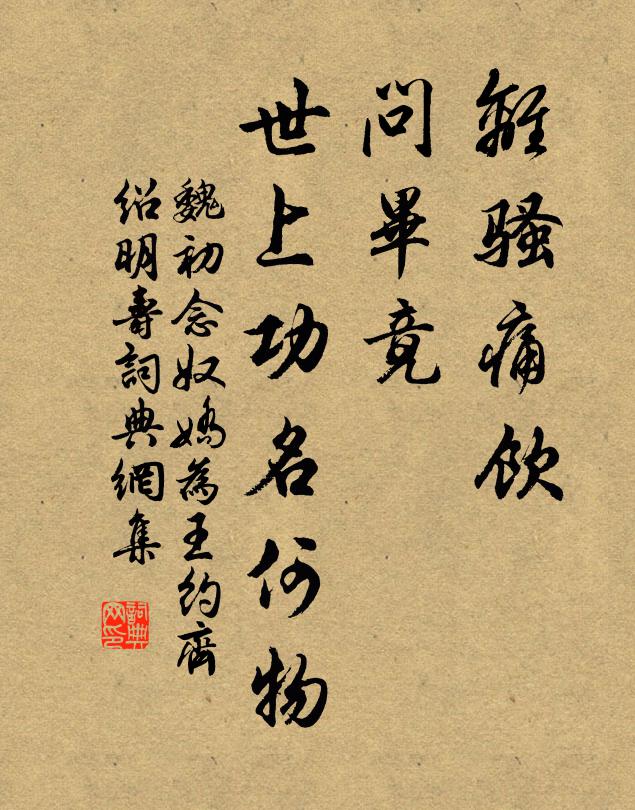 離騷痛飲
問畢竟
世上功名何物
魏初念奴嬌為王約齋
紹明壽詞典網集
詞典网印